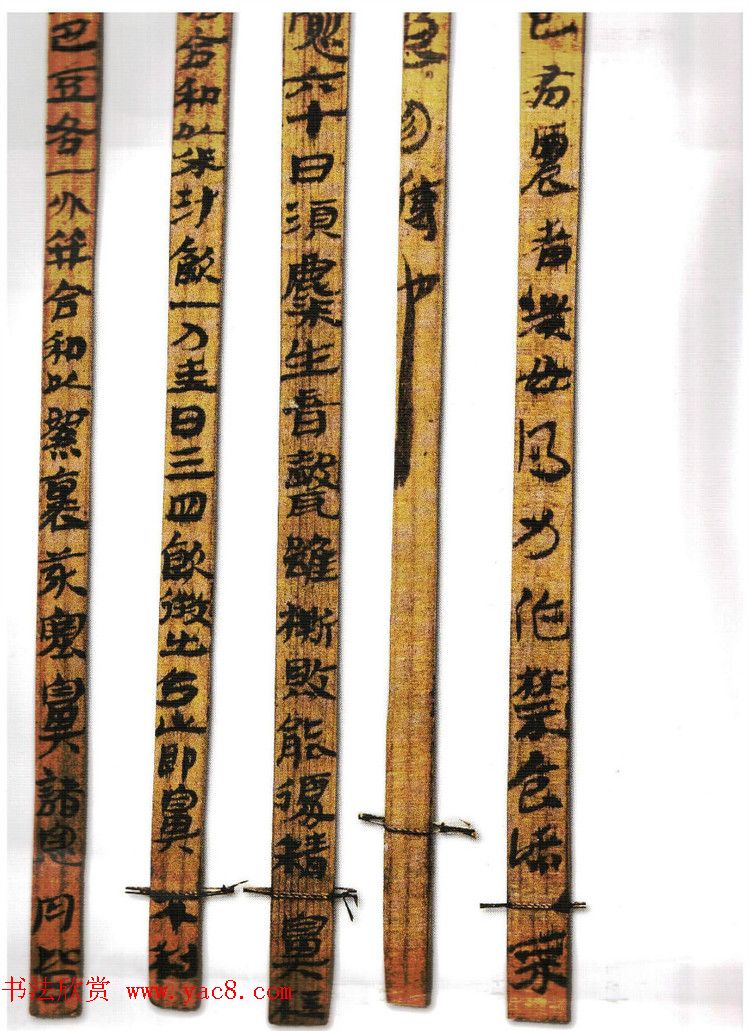 已有農者潰毋得力作禁食諸采
息勿傳也
愈六十日須麋生音聲雖撕敗能復精鼻柱
合和以米汁飲一刀圭日三四飲徵出乃止即鼻不利
巴豆各一分并合和以絮裹藥塞鼻諸息肉皆
书法欣赏 www.yac8.com